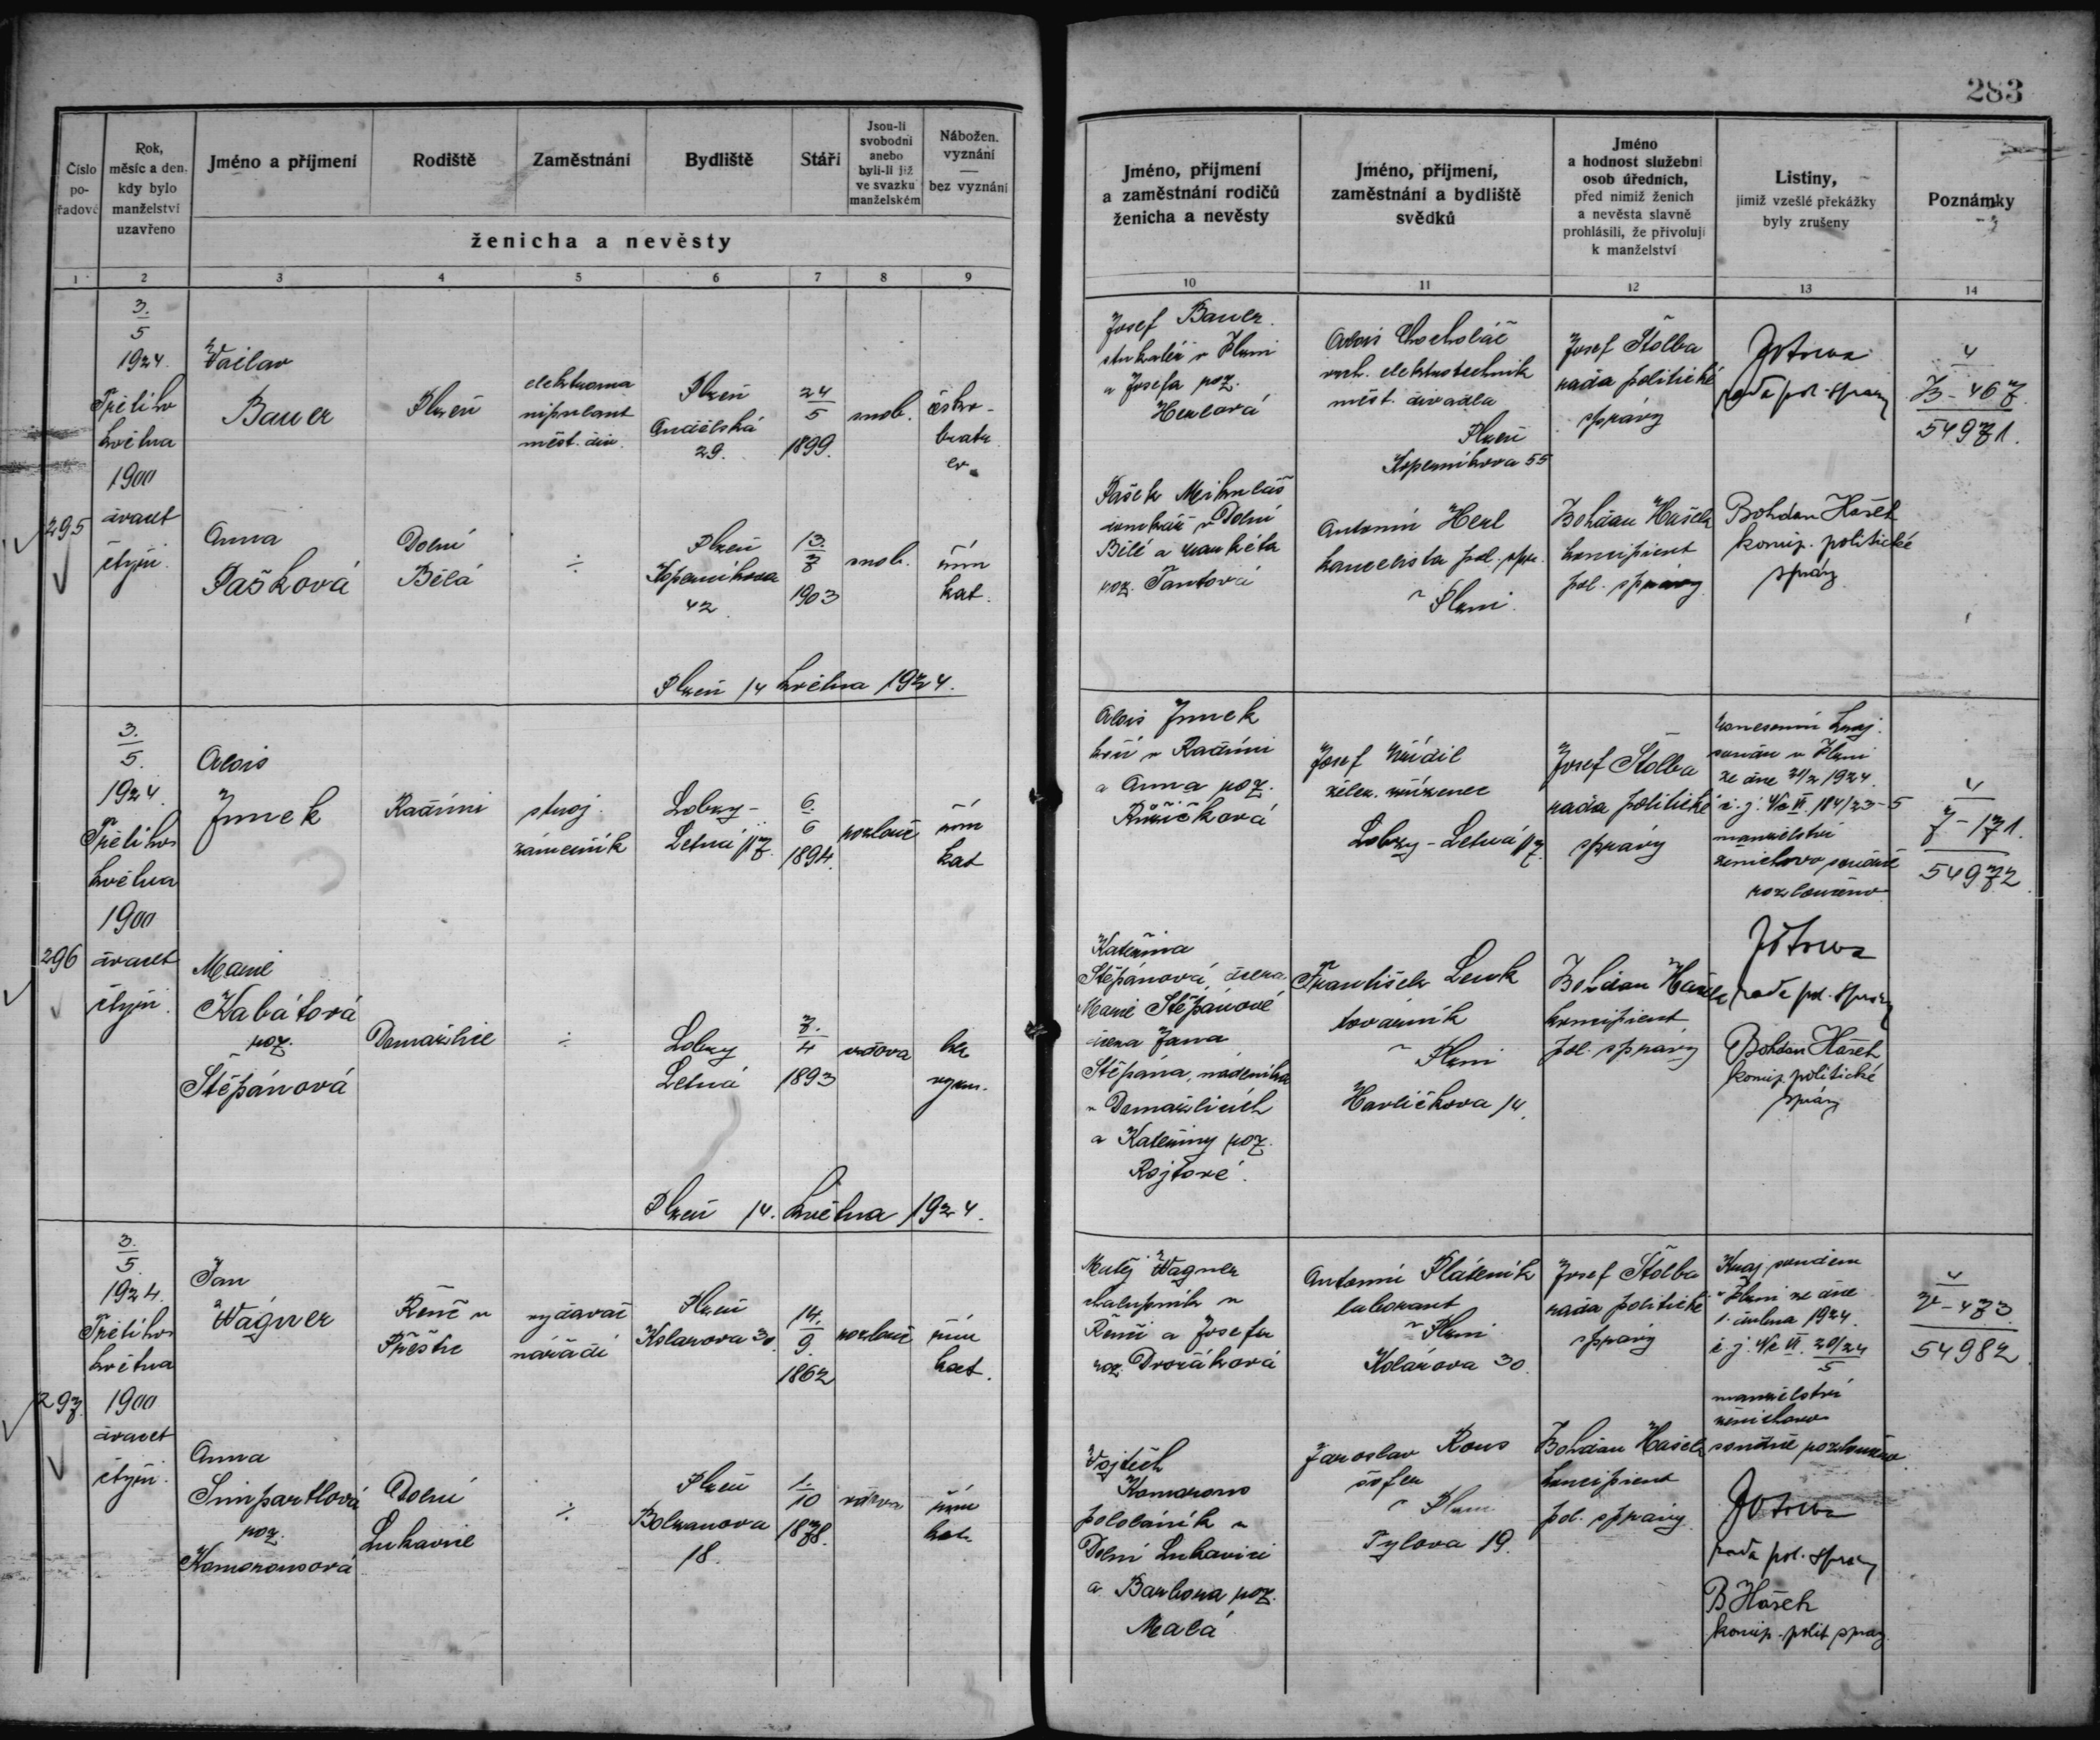 283
Číslo pořadové
Rok, měsíc a den, kdy bylo manželství uzavřeno
Jméno a příjmení
Rodiště
Zaměstnání
Bydliště
Stáří
Jsou-li svobodni anebo byli-li již ve svazku manželském
Nábožen. vyznání — bez vyznání
ženicha a nevěsty
Jméno, příjmení a zaměstnání rodičů ženicha a nevěsty
Jméno, příjmení, zaměstnání a bydliště svědků
Jméno a hodnost služební osob úředních, před nimiž ženich a nevěsta slavně prohlásili, že přivolují k manželství
Listiny, jimiž vzešlé překážky byly zrušeny
Poznámky
1 2 3 4 5 6 7 8 9 10 11 12 13 14
295
3./5
1924.
Třetího
května
1900
dvacet
čtyři.
Václav
Bauer
Plzeň
elektroma
nipulant
měst. div.
Plzeň
Andělská
29.
24/5
1899.
svob.
česko-
bratr.
ev.
Josef Bauer
štukatér v Plzni
a Josefa roz.
Herlová
Alois Chocholáč
vrch. elektrotechnik
měst. divadla
Plzeň
Koperníkova 55
Josef Štolba
rada politické
správy
rada pol. správy
4
B-467.
54971.
Anna
Pašková
Dolní
Bělá
÷
Plzeň
Koperníkova
42
13./7
1903
svob.
řím
kat.
Pašek Mikuláš
domkář v Dolní
Bělé a Markéta
roz. Tantová
Antonín Herl
kancelista pol. spr.
v Plzni.
Bohdan Hašek
koncipient
pol. správy
Bohdan Hašek
koncip. politické
správy
Plzeň 14 května 1924.
296
3./5.
1924
Třetího
května
1900
dvacet
čtyři.
Alois
Jinek
Radčini
stroj.
zámečník
Lobzy-
Letná 17.
6./6
1894.
rozlouč
řím
kat
Alois Jinek
v Radčini
a Anna roz.
Růžičková
Josef Křídil
želez. zřízenec
Lobzy-Letná 17.
Josef Štolba
rada politické
správy
Usnesením kraj.
soudu v Plzni
ze dne 20/2 1924
č. j. Nc VI 184/23-5
manželství
ženichovo soudně
rozloučeno
rada pol. správy
4
J-171.
54972.
Marie
Kabátová
roz.
Štěpánová
Domažlice
÷
Lobzy
Letná
7./4
1893
vdova
bez
vyzn.
Kateřina
Štěpánová, dcera
Marie Štěpánové
dcera Jana
Štěpána, nádeníka
v Domažlicích
a Kateřiny roz.
Rojtové.
František Lenk
továrník
v Plzni
Havlíčkova 14.
Bohdan Hašek
koncipient
pol. správy
Bohdan Hašek
koncip. politické
správy
Plzeň 14. května 1924.
297.
3./5.
1924.
Třetího
května
1900
dvacet
čtyři.
Jan
Wágner
Řenč u
Přeštic
vydavač
nářadí
Plzeň
Kolarova 30.
14./9.
1862
rozlouč
řím
kat.
Matěj Wagner
chalupník v
Řenči a Josefa
roz. Dvořáková
Antonín Pláteník
laborant
v Plzni
Kolárova 30.
Josef Štolba
rada politické
správy
Kraj. soudem
v Plzni ze dne
1. dubna 1924.
č. j. Nc VI. 20/24
5
manželství
ženichovo
soudně rozloučeno.
4
W-473.
54982.
Anna
Simpartlová
roz.
Komorousová
Dolní
Lukavice
÷
Plzeň
Bolzanova
18.
1/10
1878.
vdova
řím
kat.
Vojtěch
Komorous
pololáník v
Dolní Lukavici
a Barbora roz.
Malá
Jaroslav Rous
šofer
v Plzni
Tylova 19.
Bohdan Hašek
koncipient
pol. správy.
rada pol. správy
B Hašek
koncip. polit. správy